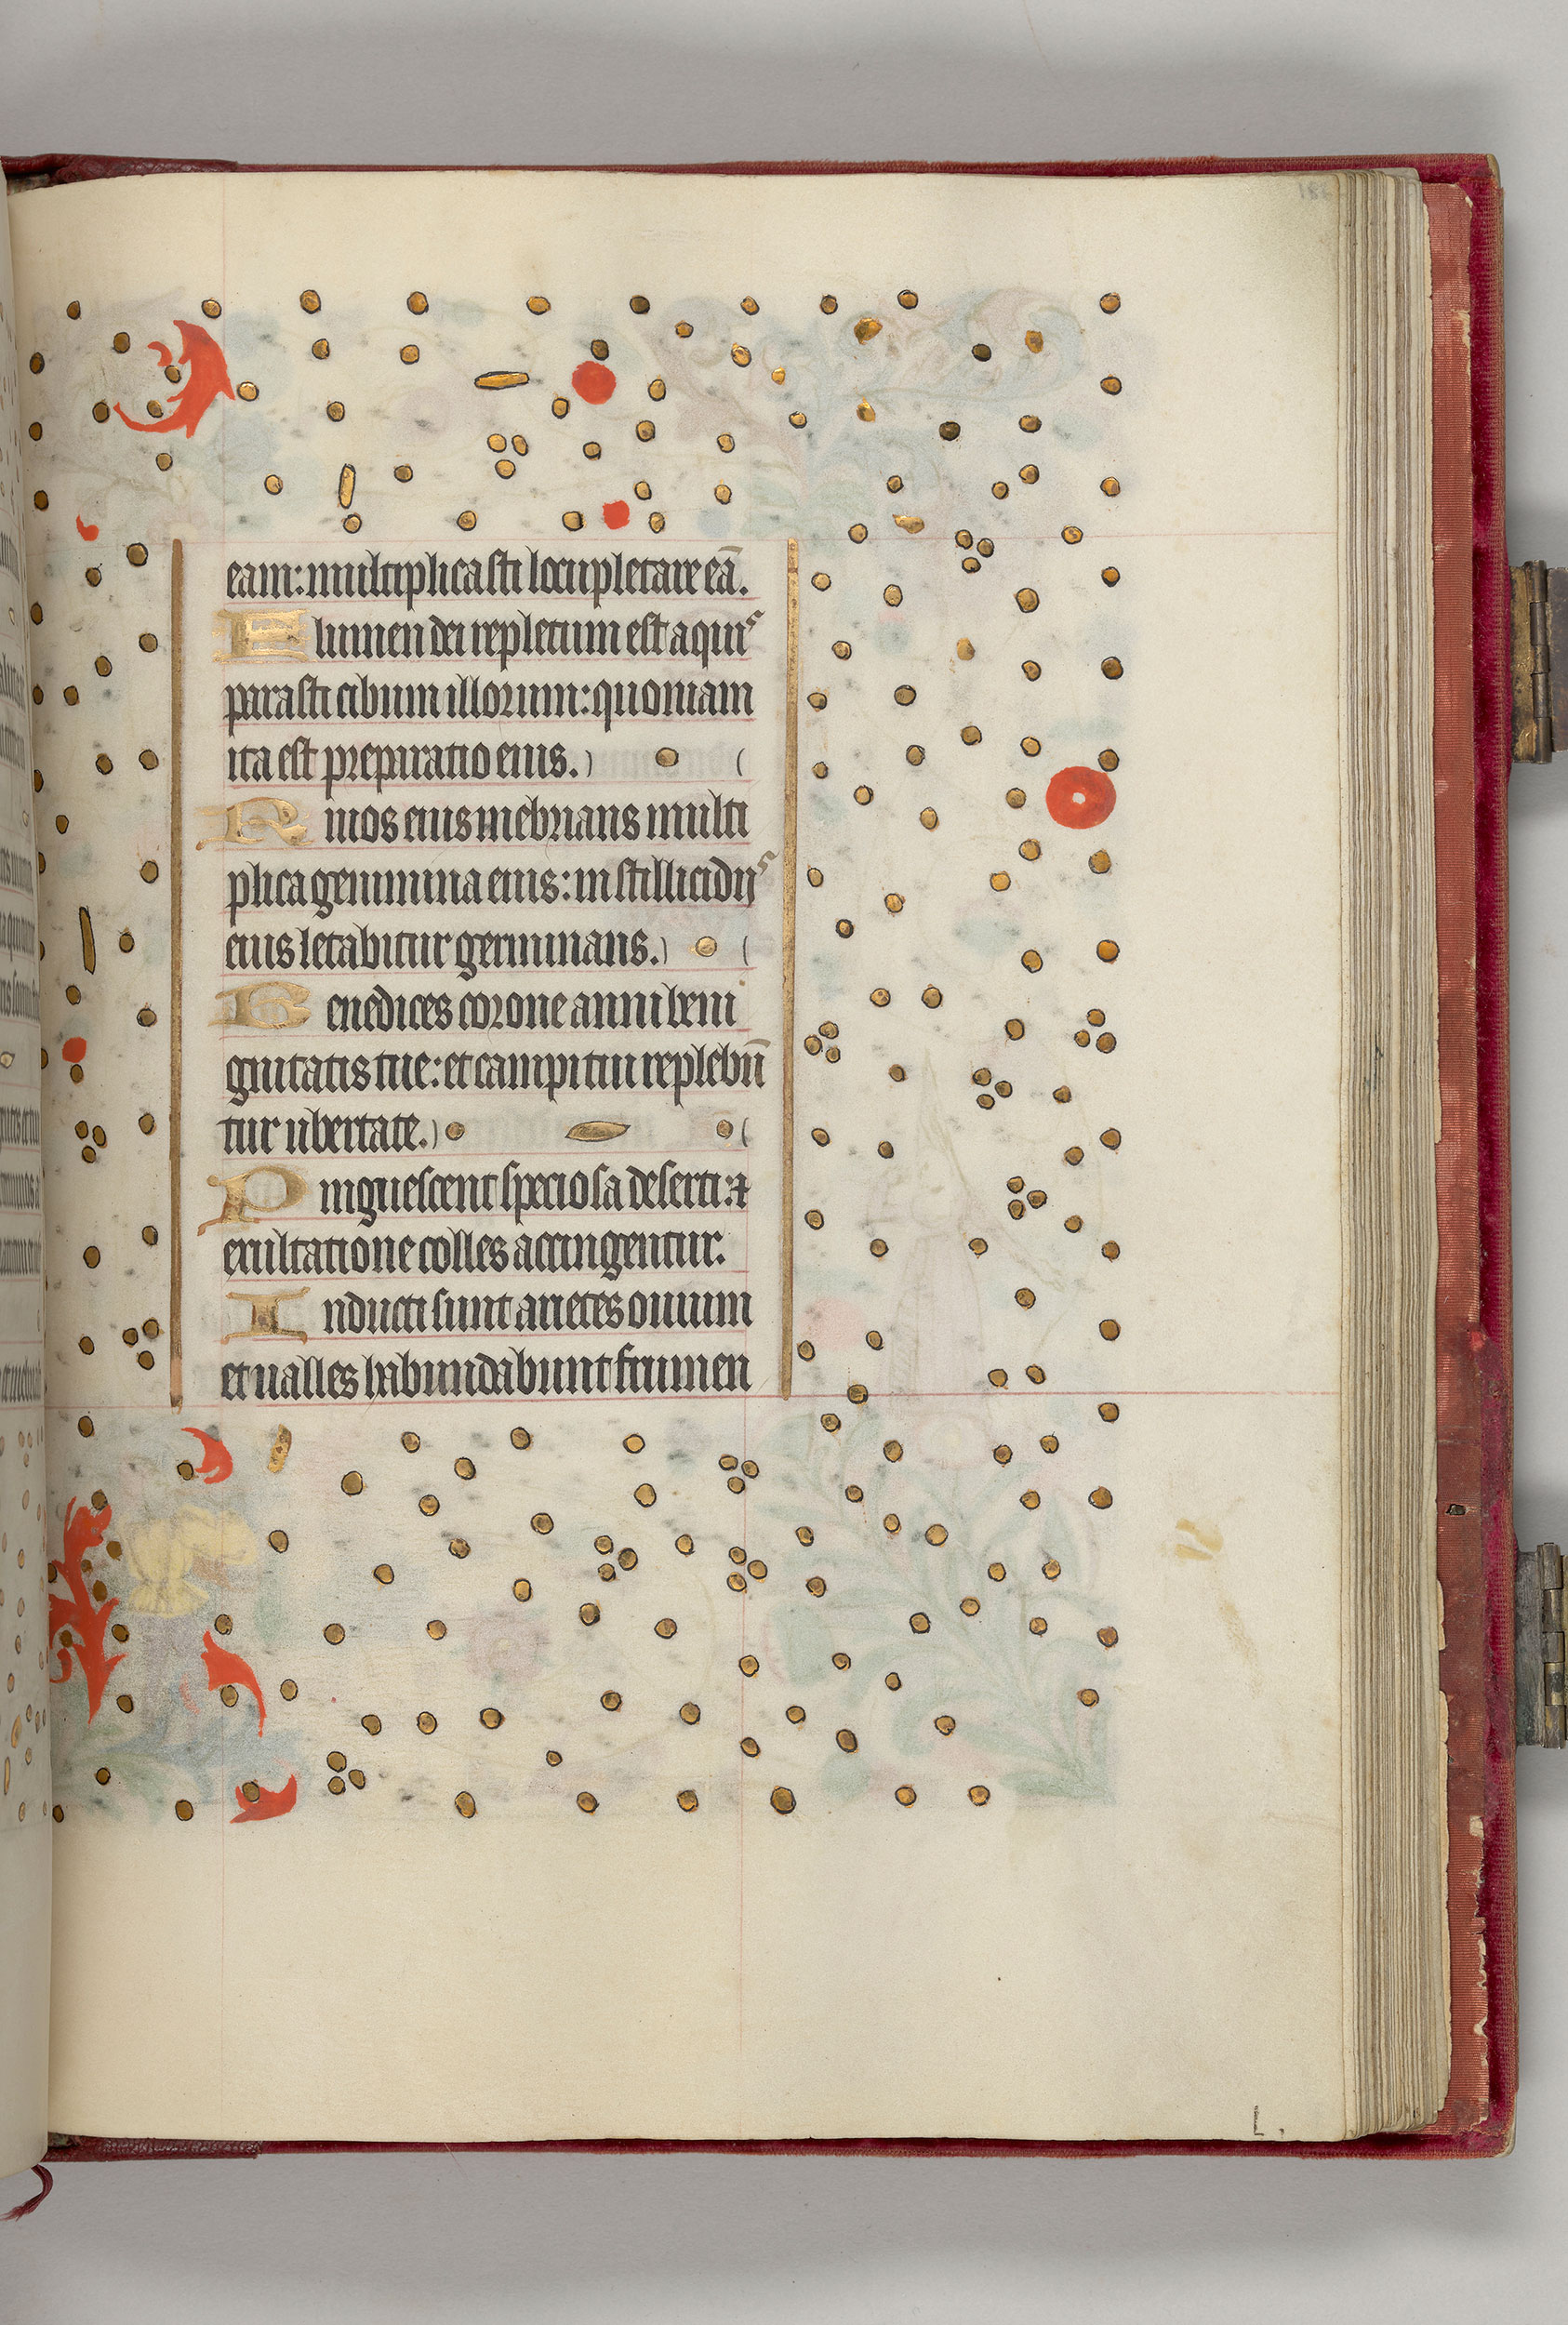 eam: multiplicasti locupletare eā.
Flumen dei repletum est aquis
parasti cibum illorum: quoniam
ita est preparatio eius.
Riuos eius inebrians multi
plica genimina eius: in stillicidijs
eius letabitur germinans.
Benedices corone anni beni
gnitatis tue: et campi tui replebūt
tur ubertate.
Pinguescent speciosa deserti: ⁊
exultatione colles accingentur.
Induti sunt arietes ouium
et ualles habundabunt frumen